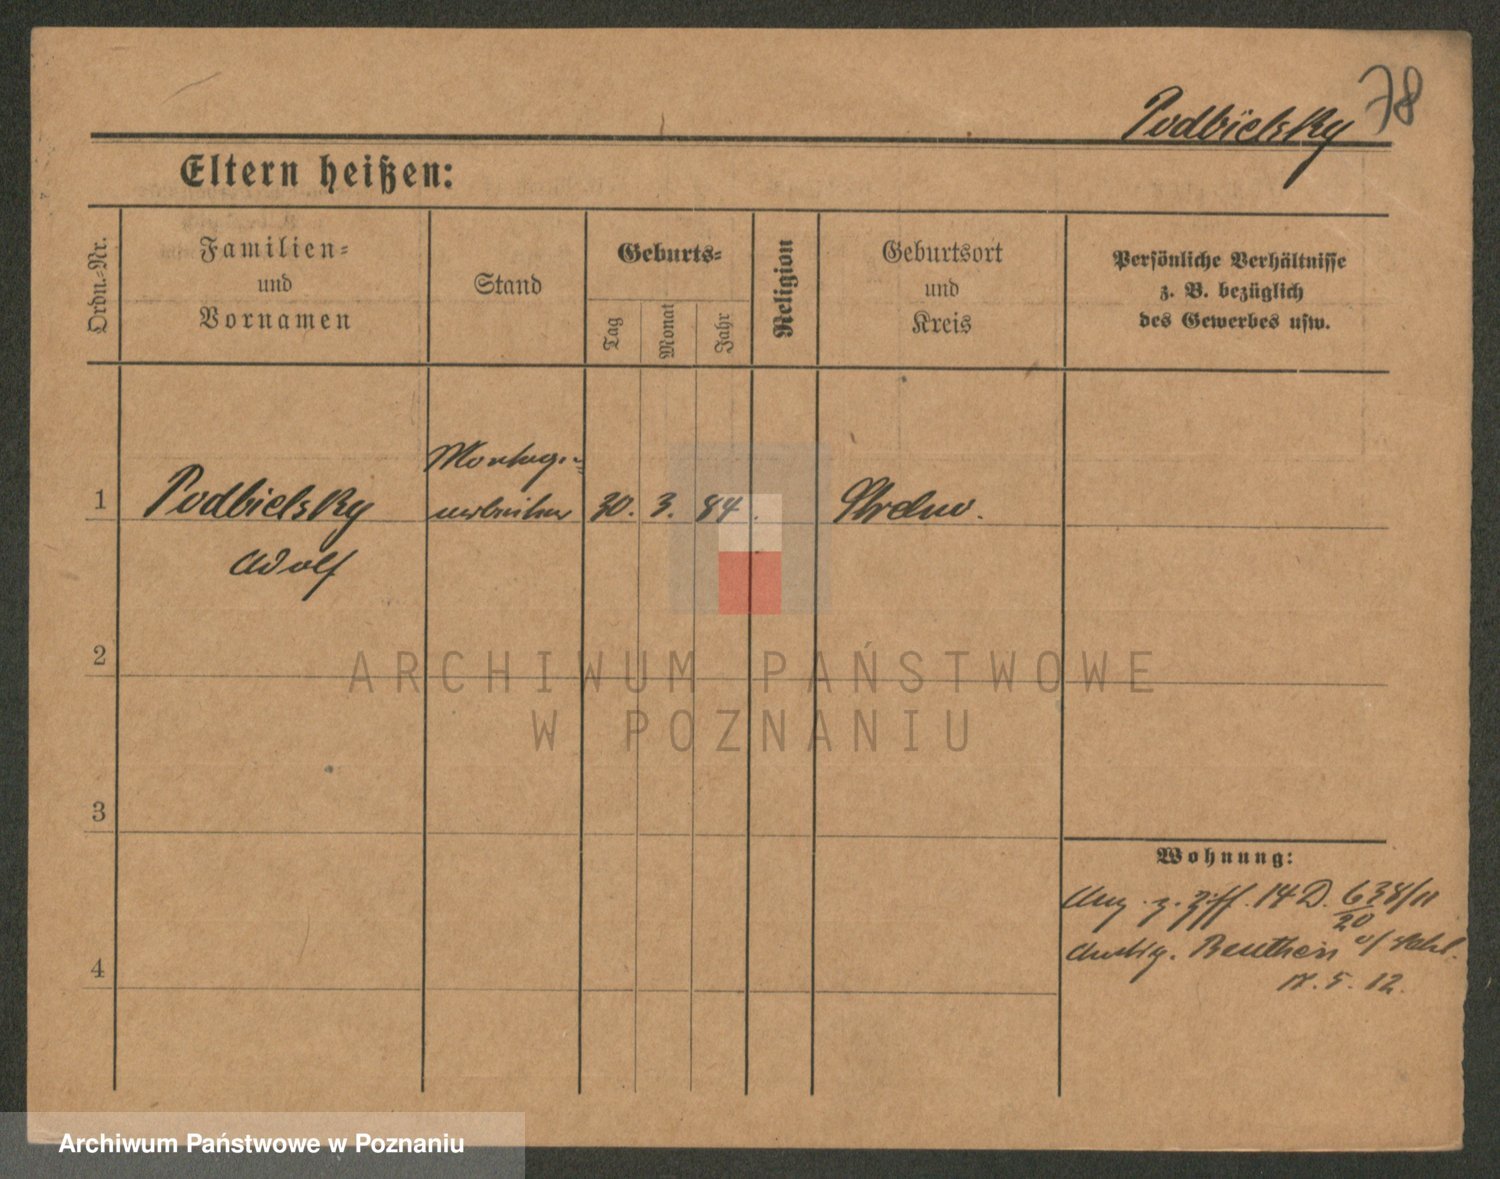 78
Podbielsky
Eltern heißen:
Ordn.-Nr.
Familien-
und
Vornamen
Stand
Geburts-
Tag
Monat
Jahr
Religion
Geburtsort
und
Kreis
Persönliche Verhältnisse
z. B. bezüglich
des Gewerbes usw.
1
Podbielsky
Adolf
Montage-
arbeiter
30. 3. 84.
Strelno.
2
3
4
Wohnung:
Anz. z. Ziff. 14 D. 638/11
20
Beuthen o/
17. 5. 12.
ARCHIWUM PAŃSTWOWE
W POZNANIU
Archiwum Państwowe w Poznaniu